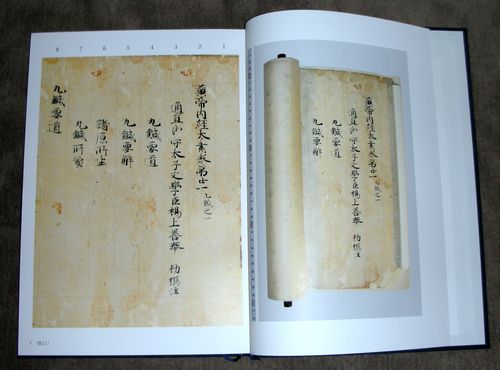 8 7 6 5 4 3 2 1
黃帝內經太素卷第廿一 九鍼之一
通直郎守太子文學臣楊上善奉 勑撰注
九鍼要道
九鍼要解
諸原所生
九鍼所象
九鍼要道
黃帝內經太素卷第廿一 九鍼之一
通直郎守太子文學臣楊上善奉 勑撰注
九鍼要道
九鍼要解